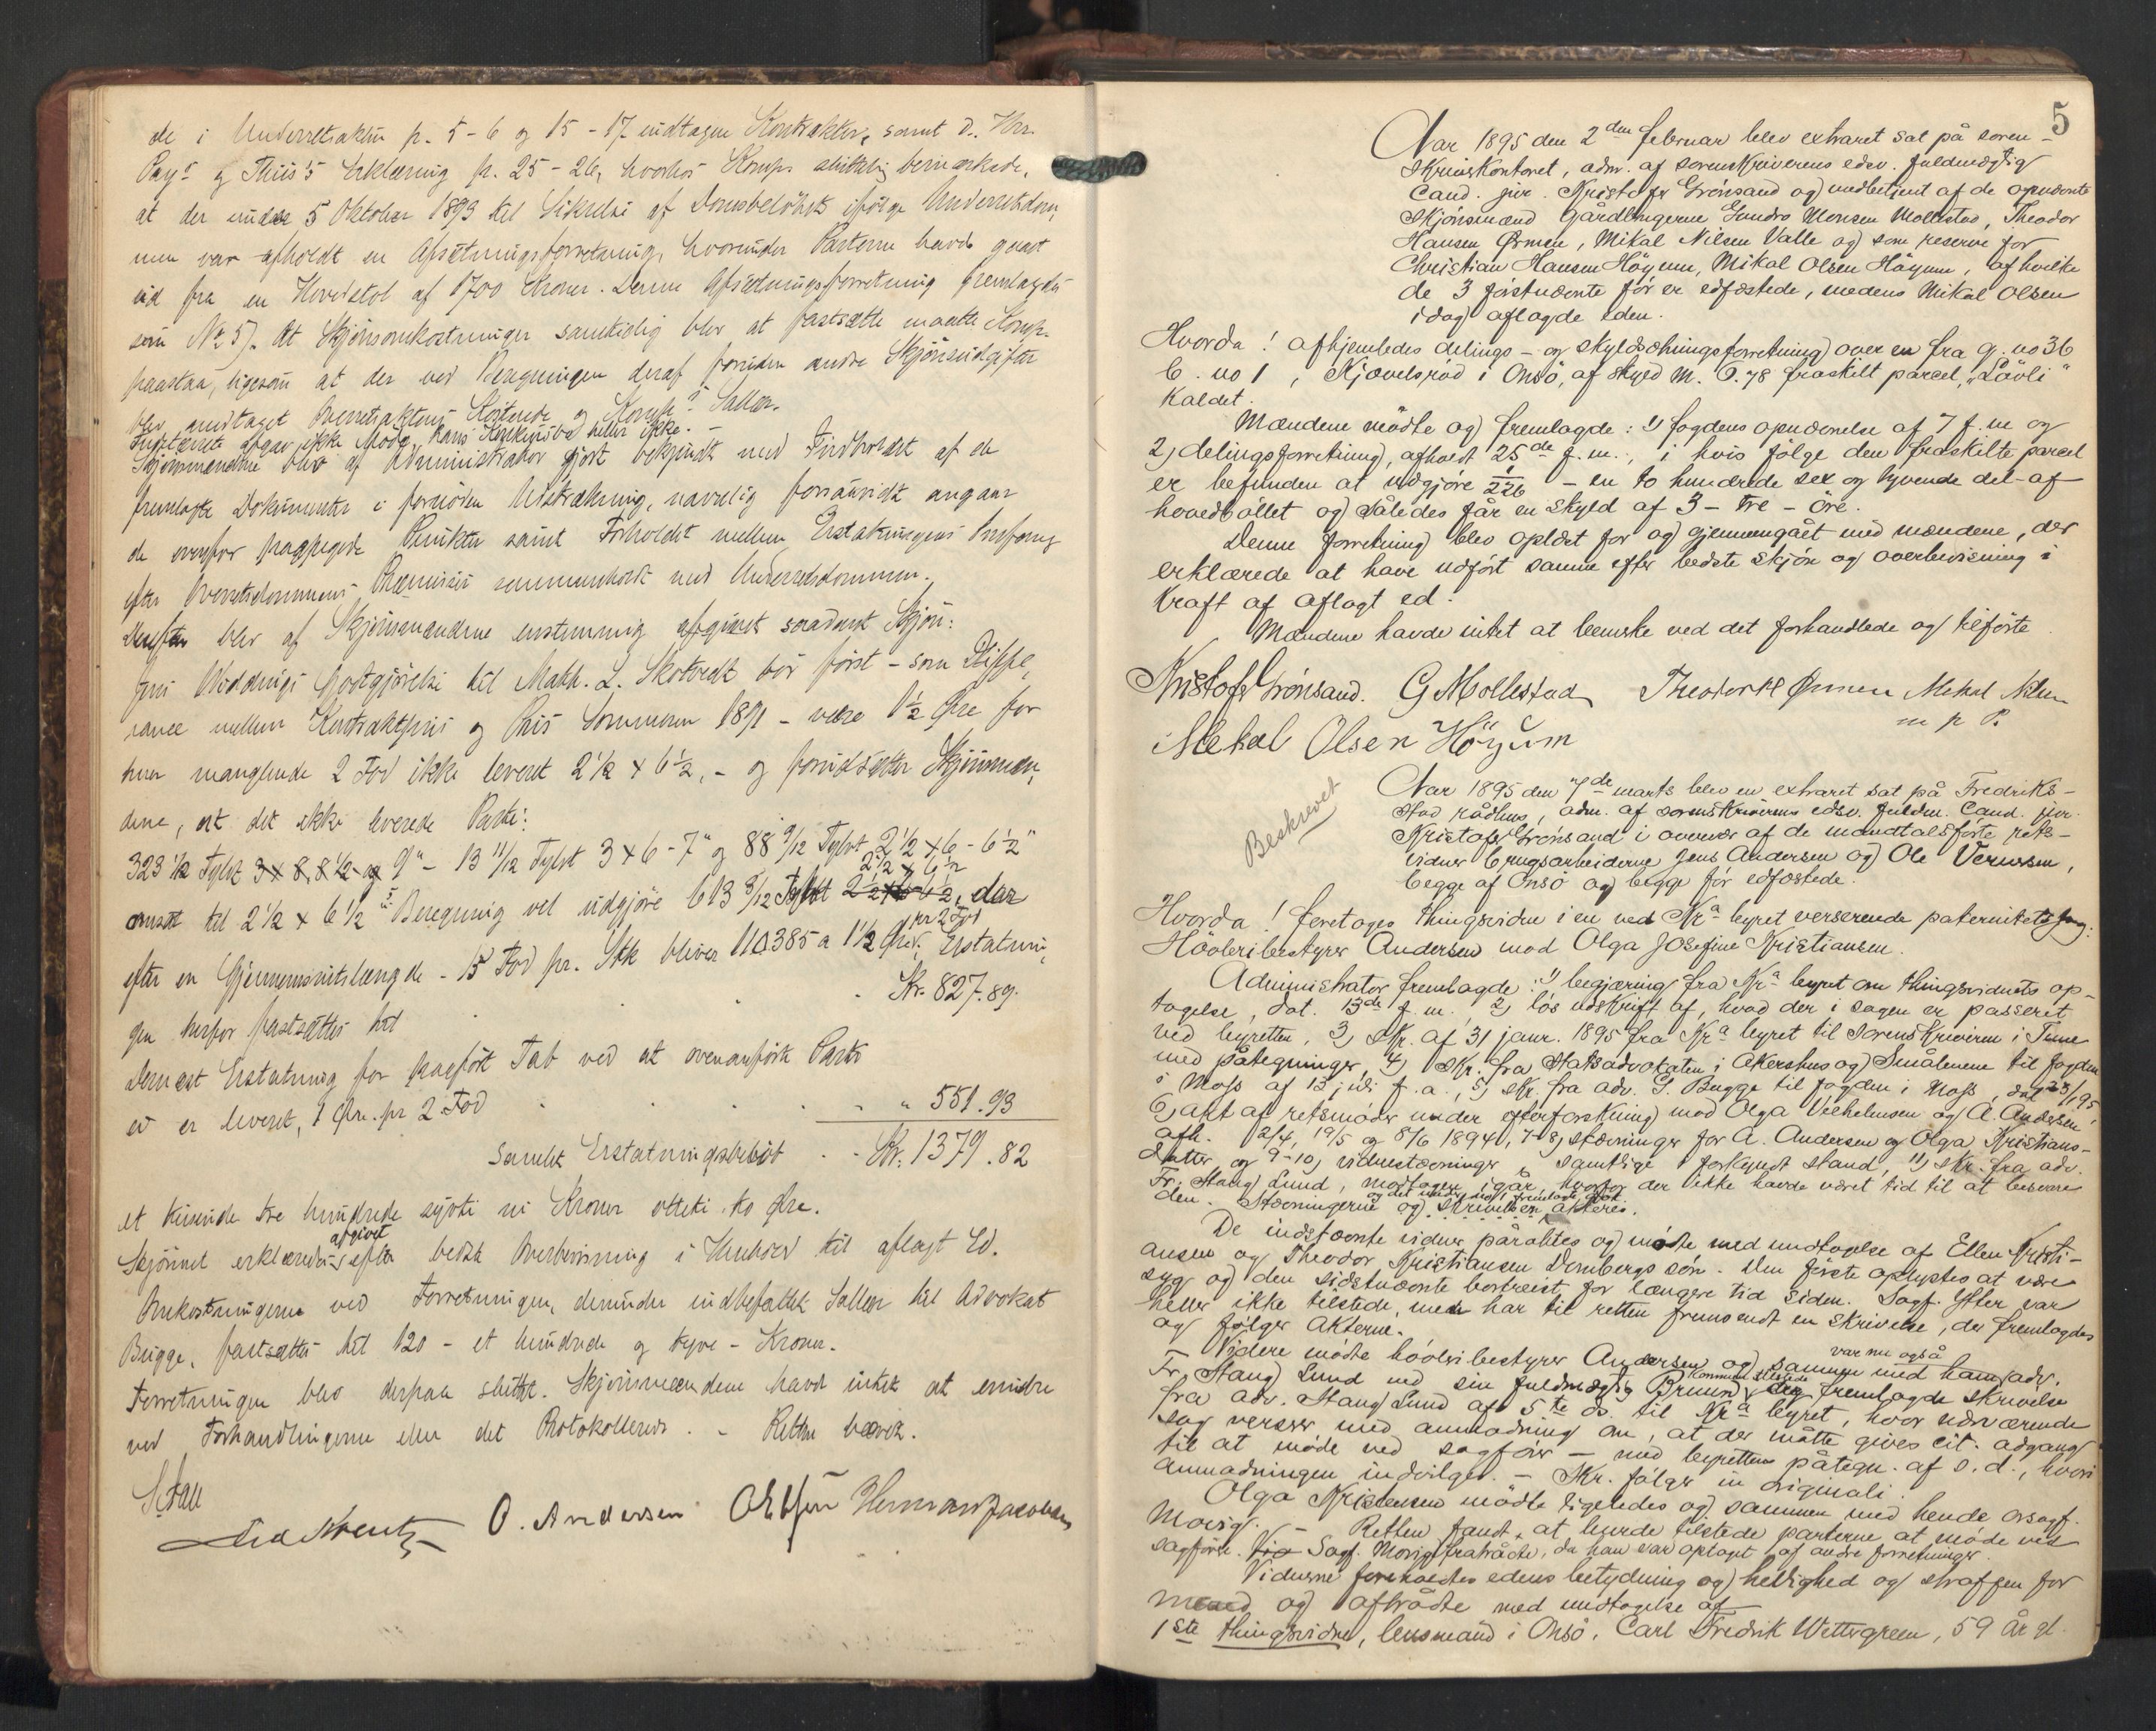 de i Underretsakten p. 5-6 og 15-17 indtagne Kontrakter, samt D. Hrr.
Pays og Thiis's Erklæring p. 25-26, hvorhos Komp. bemærkede,
at der under 5 Oktober 1893 til Sikkelse af Domsbeløbets ifølge Underretsdom,
men var afholdt en Afsætningsforretning, hvorunder Parterne havde gaaet
ud fra en Hovedstol af 1700 Kroner. Denne Afsætningsforretning fremlagdes
som No 5). At Skjönsomkostninger samtidig blev at fastsætte maatte Komp.
paastaa, ligesom at der ved Beregningen deraf foruden andre Skjönsudgifter
blev medtaget Overretsaktens Kostende og Komp's Sallær.
afgav ikke Møde, hans heller ikke. -
Skjönsmændene blev af Administrator gjort bekjendt med Indholdet af de
fremlagte Dokumenter i fornöden Udstrækning, navnlig forsaavidt angaar
de ovenfor paapegede Punkter samt Forholdet mellem Erstatningens Omfang
efter Overretsdommens Præmisser sammenholdt med Underretsdommen.
Derefter blev af Skjönsmændene enstemmig afgivet saadant Skjön:
Jens Woddings Godtgjörelse til Math. L. Skotvedt bör först - som Diffe,
rance mellem Kontraktpris og Pris Sommeren 1891 - være 1 1/2 Øre for
hver manglende 2 Fod ikke leveret 2 1/2 x 6 1/2, - og forudsætter Skjönsmæn,
dene, at det ikke leverede Parti:
323 1/2 Tylvt 3 x 8, 8 1/2 og 9" - 13 11/12 Tylvt 3 x 6 - 7" og 88 9/12 Tylvt 2 1/2 x 6 - 6 1/2"
2 1/2 x 6 1/2
omsat til 2 1/2 x 6 1/2's Beregning vil udgjöre 613 3/12 Tylvt 2 1/2 x 6 - 6 1/2, der
pr 2 Fod
efter en Gjennemsnitslængde - 15 Fod pr. Stk bliver 110.385 a 1 1/2 Øre, Erstatnin,
gen herfor fastsættes til . . . Kr. 827.89.
Dernæst Erstatning for paaført Tab ved at ovenanførte Parti
ei er leveret, 1 Øre pr 2 Fod . . . . " 551.93
Samlet Erstatningsbeløb . . Kr. 1379.82
et tusende tre hundrede sytti ni Kroner otteti to Øre.
afgivet
Skjönnet erklæredes efter bedste Overbevisning i Henhold til aflagt Ed.
Omkostningerne ved Forretningen, derunder indbefattet Sallær til Advokat
Bugge, fastsættes til 120 - et hundrede og tyve - Kroner.
Forretningen blev derpaa sluttet. Skjönsmændene havde intet at erindre
ved Forhandlingerne eller det Protokollerede. - Retten hævet.
O. Andersen Herman Jacobsen
5
Aar 1895 den 2den februar blev extraret sat på soren-
skriverkontoret, adm. af sorenskriverens edsv. fuldmægtig
Cand. jur. Kristofer Grønsand og medbetjent af de opnævnte
skjönsmænd gårdbrugerne Gundro Monsen Mollestad, Theodor
Hansen Ørmen, Mikal Nilsen Valle og som reserve for
Christian Hansen Höyum, Mikal Olsen Höyum, af hvilke
de 3 förstnævnte för er edfæstede, medens Mikal Olsen
idag aflagde eden.
Hvorda! afhjemledes delings- og skyldsætningsforretning over en fra g. no 36
b. no 1, Kjævelsröd i Onsö, af skyld M. 6.78 fraskilt parcel, "Lövli"
kaldet.
Mændene mödte og fremlagde: 1) fogdens opnævnelse af 7 f. m og
2) delingsforretning, afholdt 25de f. m., i hvis fölge den fraskilte parcel
er befunden at udgjöre 1/226 - en to hundrede sex og tyvende del - af
hovedböllet og således får en skyld af 3 - tre - öre.
Denne forretning blev oplæst for og gjennemgået med mændene, der
erklærede at have udfört samme efter bedste skjön og overbevisning i
kraft af aflagt ed.
Mændene havde intet at bemærke ved det forhandlede og tilförte.
Kristofer Grönsand. G Mollestad Theodor H Ørmen Mekal Nilsen
m p P.
Mekal Olsen Höyum
Beskrevet
Aar 1895 den 7de marts blev en extraret sat på Fredriks-
stad rådhus, adm. af sorenskriverens edsv. fuldm. Cand. jur.
Kristofer Grönsand i overvær af de mandtalsförte rets-
vidner brugsarbeiderne Jens Andersen og Ole Vernersen,
begge af Onsö og begge för edfæstede.
Hvorda! foretoges thingsvidne i en ved Kra byret verserende paternitetssag:
Hövleribestyrer Andersen mod Olga Josefine Kristiansen.
Administrator fremlagde: 1) begjæring fra Kra byret om thingsvidnets op-
tagelse, dat. 13de f. m. 2) lös udskrift af, hvad der i sagen er passeret
ved byretten, 3) skr. af 31 janr. 1895 fra Kra byret til sorenskriveren i Tune
med påtegninger, 4) skr. fra statsadvokaten i Akershus og Smålenene til fogden
i Moss af 13 juli f. a., 5) skr. fra adv. S. Bugge til fogden i Moss, dat 23/1 95
6) akt af retsmöder under efterforskning mod Olga Vilhelmsen og A Andersen
afh. 12/4, 19/5 og 8/6 1894, 7-8) stævninger for A. Andersen og Olga Kristians-
datter og 9-10) vidnestævninger, samtlige i forkyndt stand, 11) skr. fra adv.
Fr. Stang Lund, modtagen igår, hvorfor der ikke havde været tid til at besvare
og det under no 1 fremlagte
den. Stævningerne og skrivelsen akteres.
De indstævnte vidner påråbtes og mödte med undtagelse af Ellen Kristi-
ansen og Theodor Kristiansen Dombergs sön. Den förste oplystes at være
syg og den sidstnævnte bortreist for længere tid siden. Sagf. Ytter var
heller ikke tilstede, men har til retten fremsendt en skrivelse, der fremlagdes
og fölger akterne.
var nu også
Videre mödte hövleribestyrer Andersen og sammen med ham adv.
kommen tilstede
Fr. Stang Lund ved sin fuldmægtig Bruun, der fremlagde skrivelse
fra adv. Stang Lund af 5te ds. til Kra byret, hvor nærværende
sag verserer med anmodning om, at der måtte gives cit. adgang
til at möde ved sagförer - med byrettens påtegn. af s. d., hvori
anmodningen indvilges. - Skr. fölger in originali.
Olga Kristensen mödte ligeledes og sammen med hende orsagf.
Morsig. - Retten fandt, at burde tilstede parterne at möde ved
sagförer. Sagf. Morsig fratrådte, da han var optaget af andre forretninger.
Vidnerne foreholdtes edens betydning og hellighed og straffen for
mened og aftrådte med undtagelse af
1ste thingsvidne, lensmand i Onsö, Carl Fredrik Wettergreen, 59 år gl.